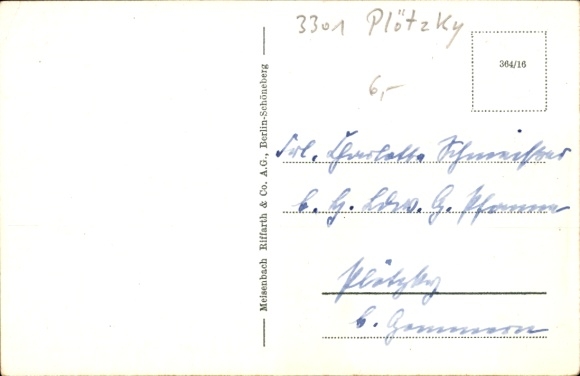 3301 Plötzky
6,-
364/16
Meisenbach Riffarth & Co. A.G., Berlin-Schöneberg
Frl. Charlotte Schmeisser
b. H. Ldw. G. Pfanne
Plötzky
b. Gommern